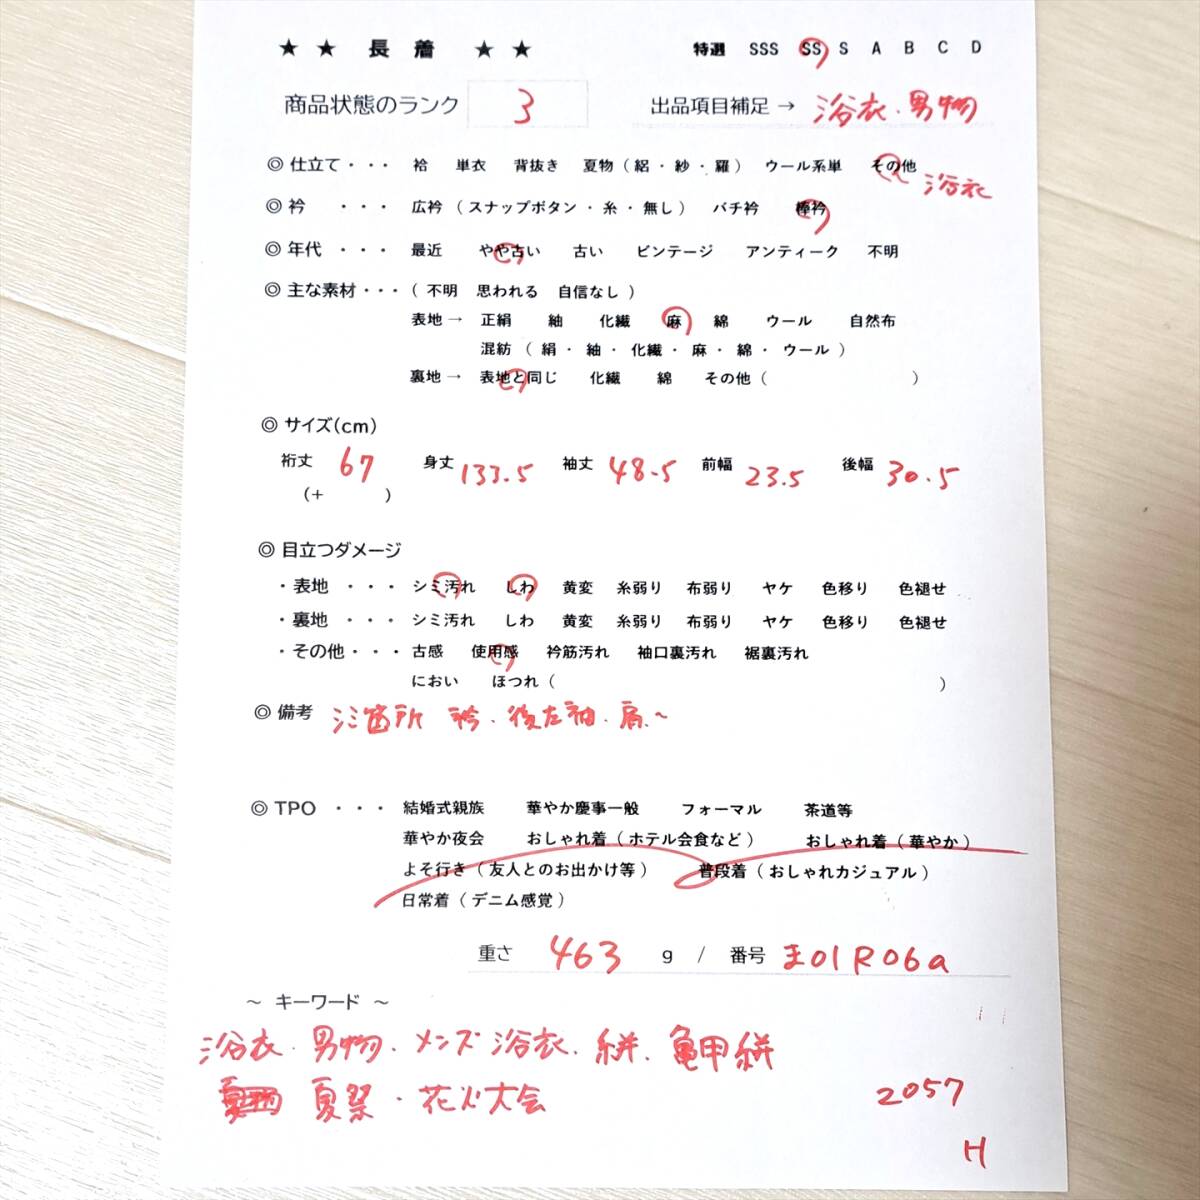 ★ ★ 長 着 ★ ★ 特選 SSS SS S A B C D
商品状態のランク 3 出品項目補足 → 浴衣・男物
◎ 仕立て・・・ 袷 単衣 背抜き 夏物(絽・紗・羅) ウール系単 その他 浴衣
◎ 衿 ・・・ 広衿(スナップボタン・糸・無し) バチ衿 棒衿
◎ 年代 ・・・ 最近 やや古い 古い ビンテージ アンティーク 不明
◎ 主な素材・・・( 不明 思われる 自信なし )
表地→ 正絹 紬 化繊 麻 綿 ウール 自然布
混紡 ( 絹・紬・化繊・麻・綿・ウール )
裏地→ 表地と同じ 化繊 綿 その他( )
◎ サイズ(cm)
裄丈 67 身丈 133.5 袖丈 48.5 前幅 23.5 後幅 30.5
(+ )
◎ 目立つダメージ
・表地 ・・・ シミ汚れ しわ 黄変 糸弱り 布弱り ヤケ 色移り 色褪せ
・裏地 ・・・ シミ汚れ しわ 黄変 糸弱り 布弱り ヤケ 色移り 色褪せ
・その他・・・ 古感 使用感 衿筋汚れ 袖口裏汚れ 裾裏汚れ
におい ほつれ( )
◎ 備考 シミ箇所 衿・後左袖・肩~
◎ TPO ・・・ 結婚式親族 華やか慶事一般 フォーマル 茶道等
華やか夜会 おしゃれ着(ホテル会食など) おしゃれ着(華やか)
よそ行き(友人とのお出かけ等) 普段着(おしゃれカジュアル)
日常着(デニム感覚)
重さ 463 g / 番号 ま01R06a
~ キーワード ~
浴衣・男物・メンズ浴衣・絣・亀甲絣
夏祭・花火大会
2057
H